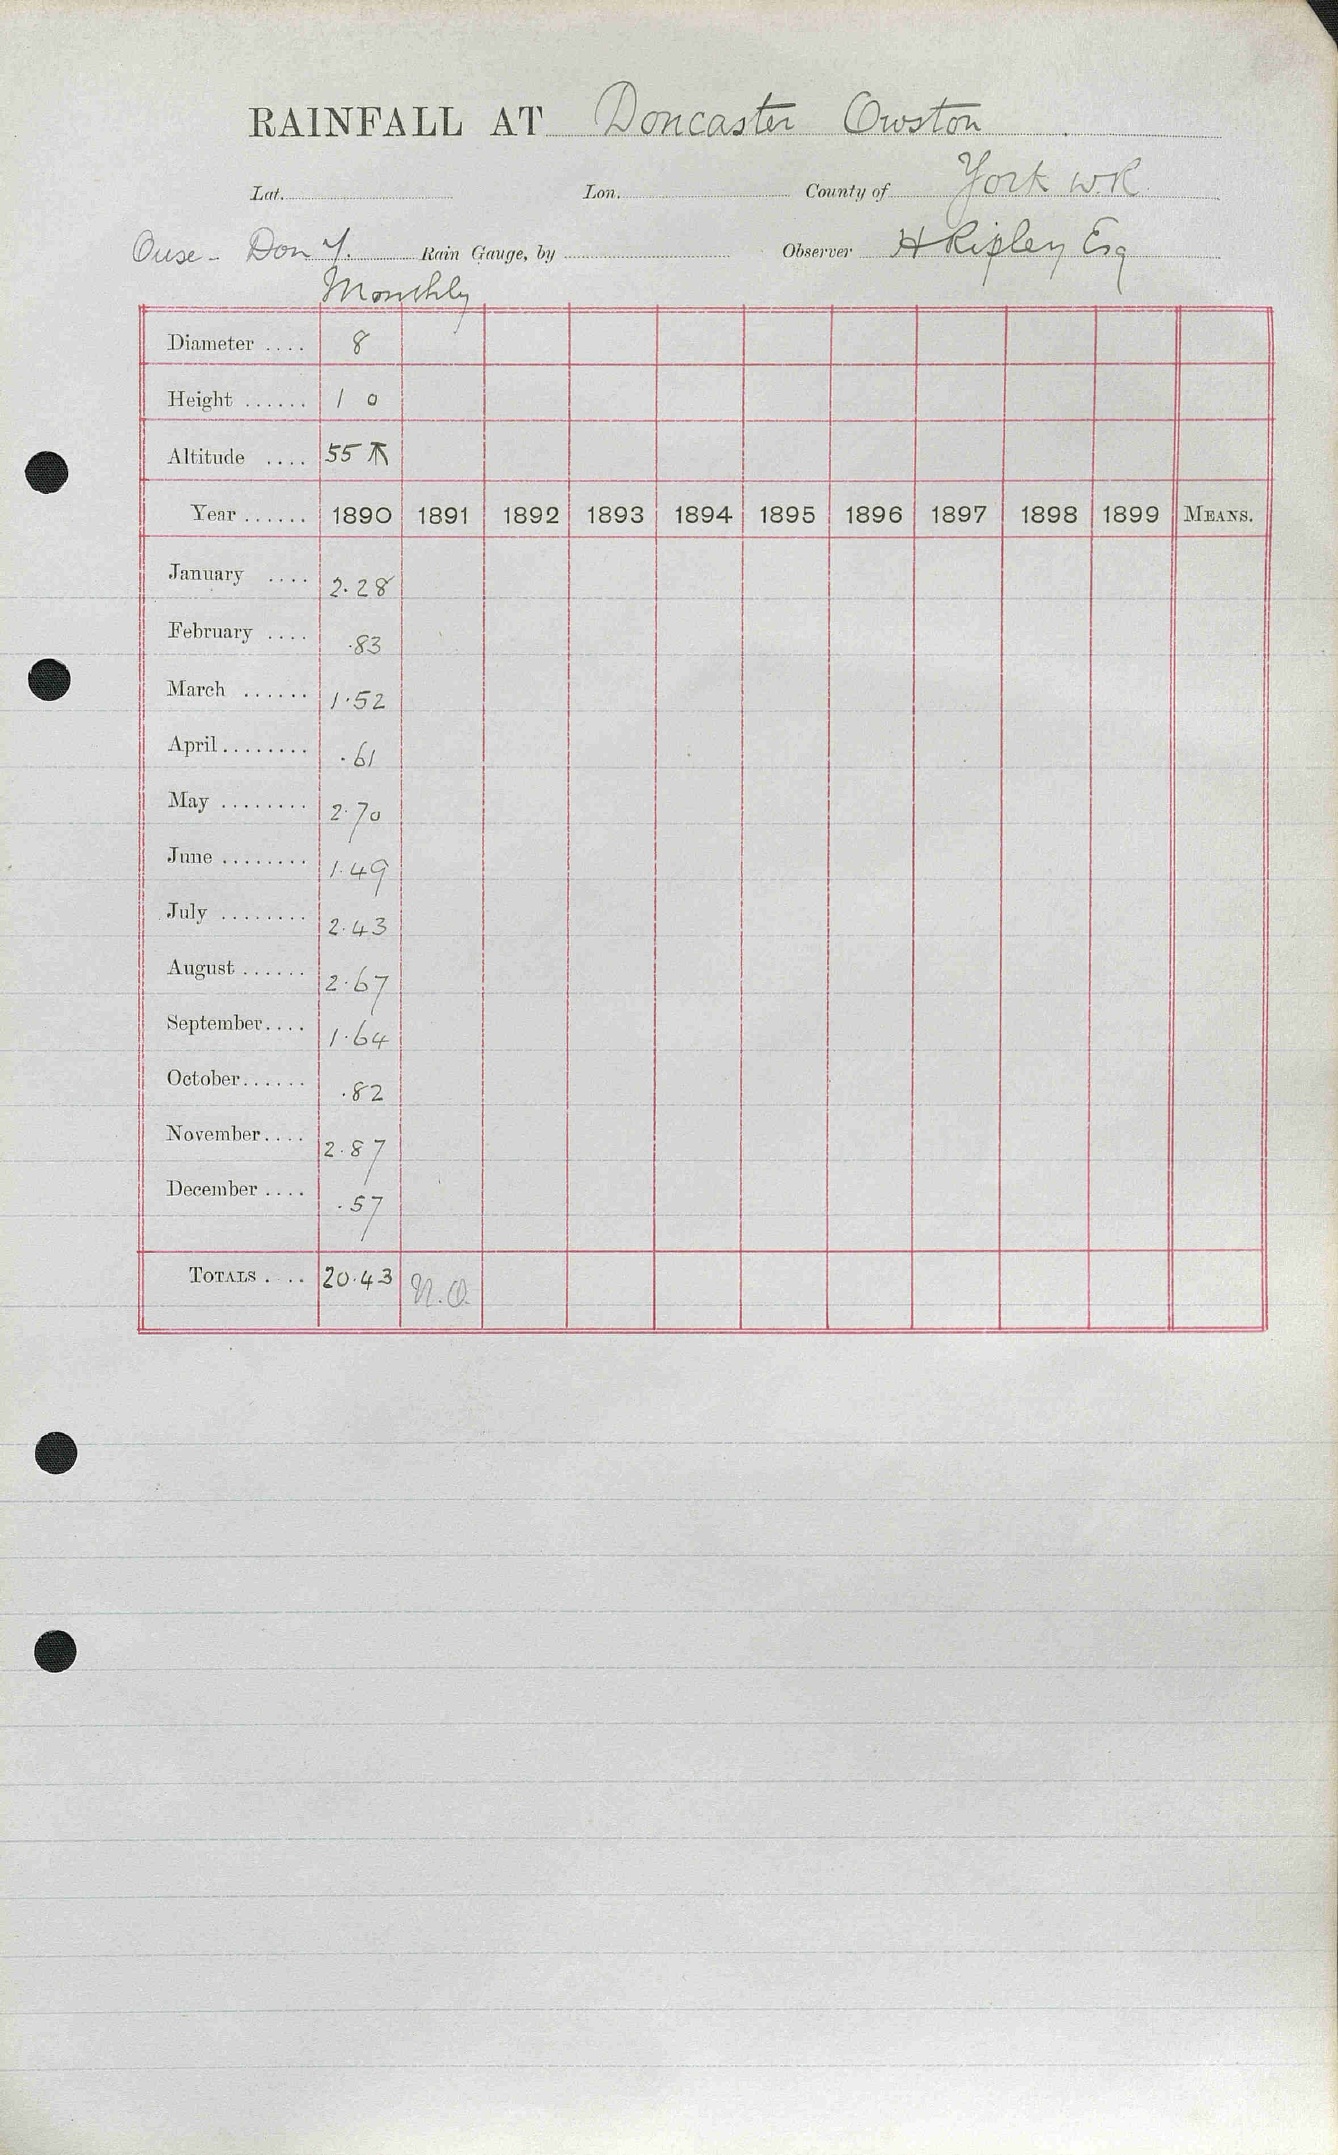 RAINFALL AT Doncaster Owston
Lat. Lon. County of York W.R.
Ouse - Don Y. Rain Gauge, by Observer H Ripley Esq
Monthly
Diameter .... 8
Height ...... 1 0
Altitude .... 55
Year ...... 1890 1891 1892 1893 1894 1895 1896 1897 1898 1899 MEANS.
January .... 2.28
February .... .83
March ...... 1.52
April ........ .61
May ........ 2.70
June ........ 1.49
July ........ 2.43
August ...... 2.67
September.... 1.64
October...... .82
November.... 2.87
December .... .57
TOTALS . .. 20.43 N.O.